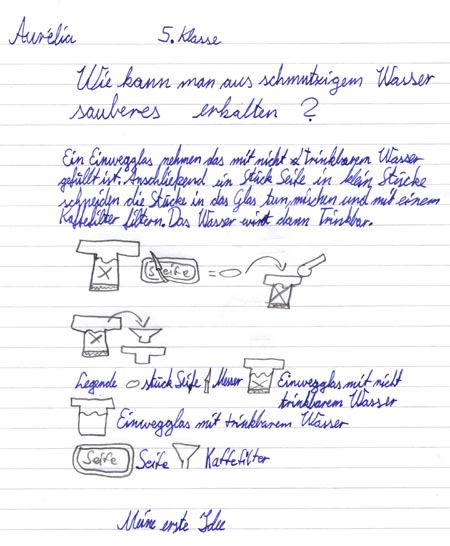 Aurélia 5. Klasse
Wie kann man aus schmutzigem Wasser
sauberes erhalten ?
Ein Einwegglas nehmen das mit nicht trinkbarem Wasser
gefüllt ist. Anschließend ein Stück Seife in klein Stücke
schneiden die Stücke in das Glas tun, mischen und mit einem
Kaffefilter filtern. Das Wasser wird dann Trinkbar.
Seife =
Legende stück Seife Messer Einwegglas mit nicht
trinkbarem Wasser
Einwegglas mit trinkbarem Wasser
Seife Seife Kaffefilter
Meine erste Idee